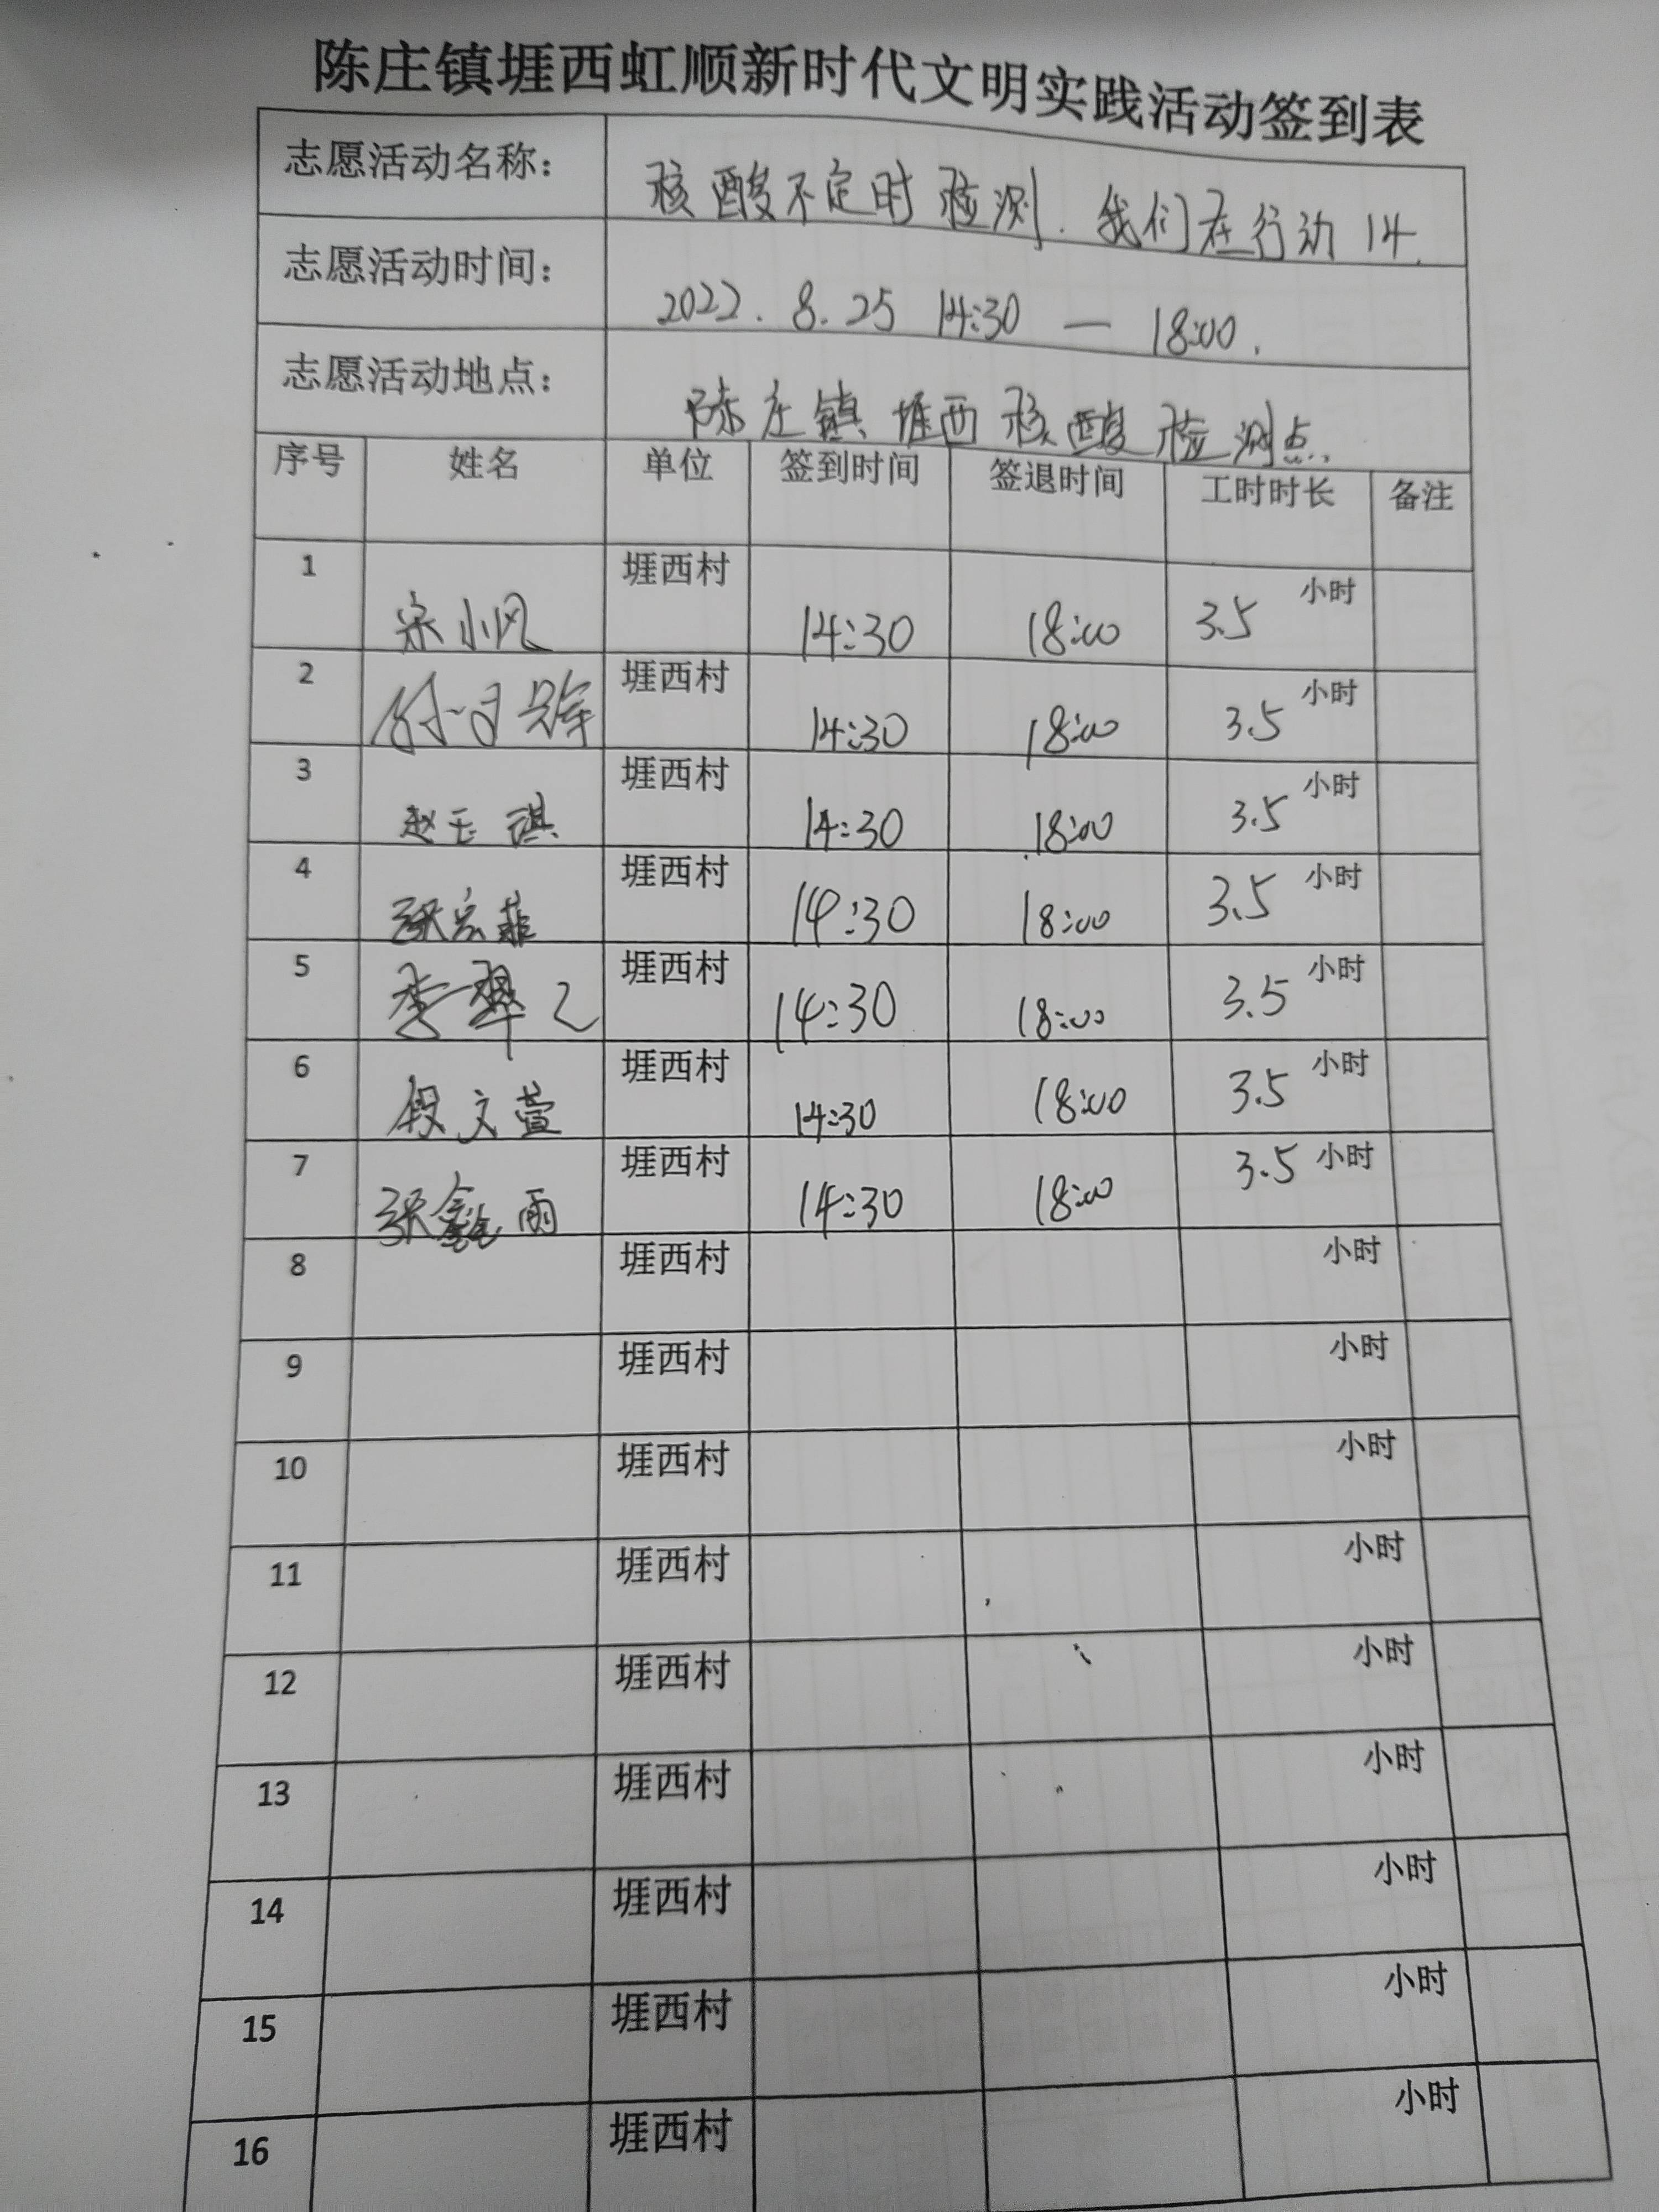 陈庄镇堐西虹顺新时代文明实践活动签到表
志愿活动名称： 核酸不定时检测.我们在行动14.
志愿活动时间： 2022.8.25 14:30 — 18:00.
志愿活动地点： 陈庄镇堐西核酸检测点.
序号 姓名 单位 签到时间 签退时间 工时时长 备注
1 宋小风 堐西村 14:30 18:00 3.5 小时
2 堐西村 14:30 18:00 3.5 小时
3 赵玉琪 堐西村 14:30 18:00 3.5 小时
4 张宏菲 堐西村 14:30 18:00 3.5 小时
5 李翠 堐西村 14:30 18:00 3.5 小时
6 段文萱 堐西村 14:30 18:00 3.5 小时
7 张鑫雨 堐西村 14:30 18:00 3.5 小时
8 堐西村 小时
9 堐西村 小时
10 堐西村 小时
11 堐西村 小时
12 堐西村 小时
13 堐西村 小时
14 堐西村 小时
15 堐西村 小时
16 堐西村 小时